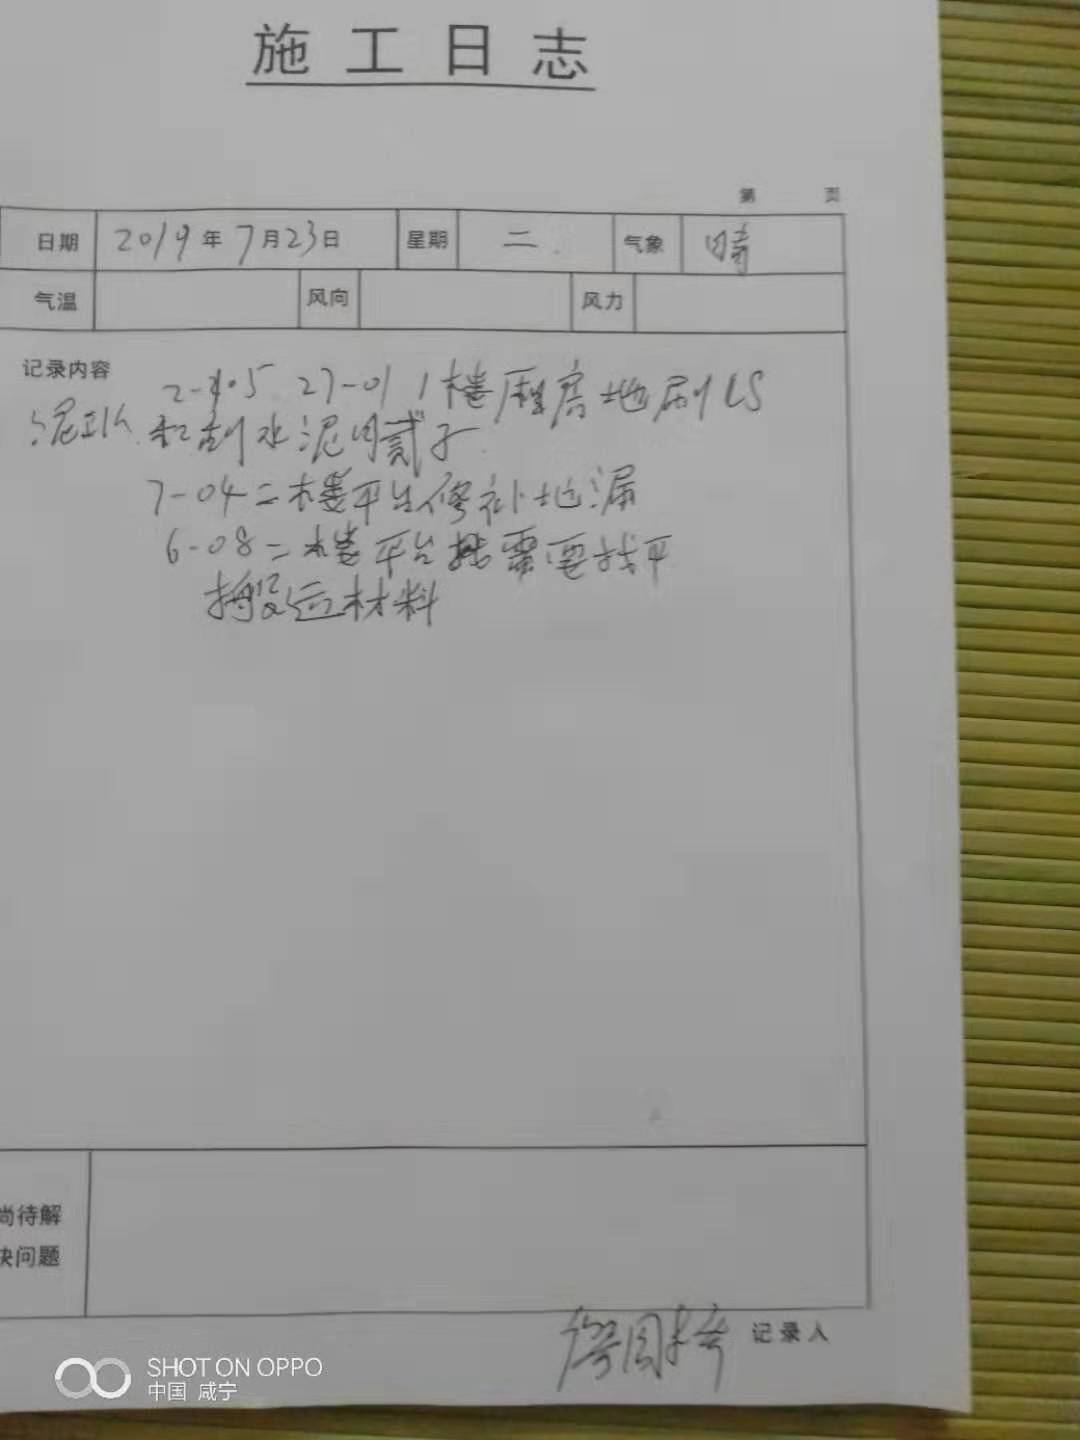 施工日志
第 页
日期 2019年7月23日 星期 二 气象 晴
气温 风向 风力
记录内容 27-01 1楼厨房地刷LS
泥工队 和刮水泥腻子
7-04二楼平台修补地漏
6-08二楼平台 需要找平
搬运材料
尚待解
决问题
记录人
SHOT ON OPPO
中国 咸宁